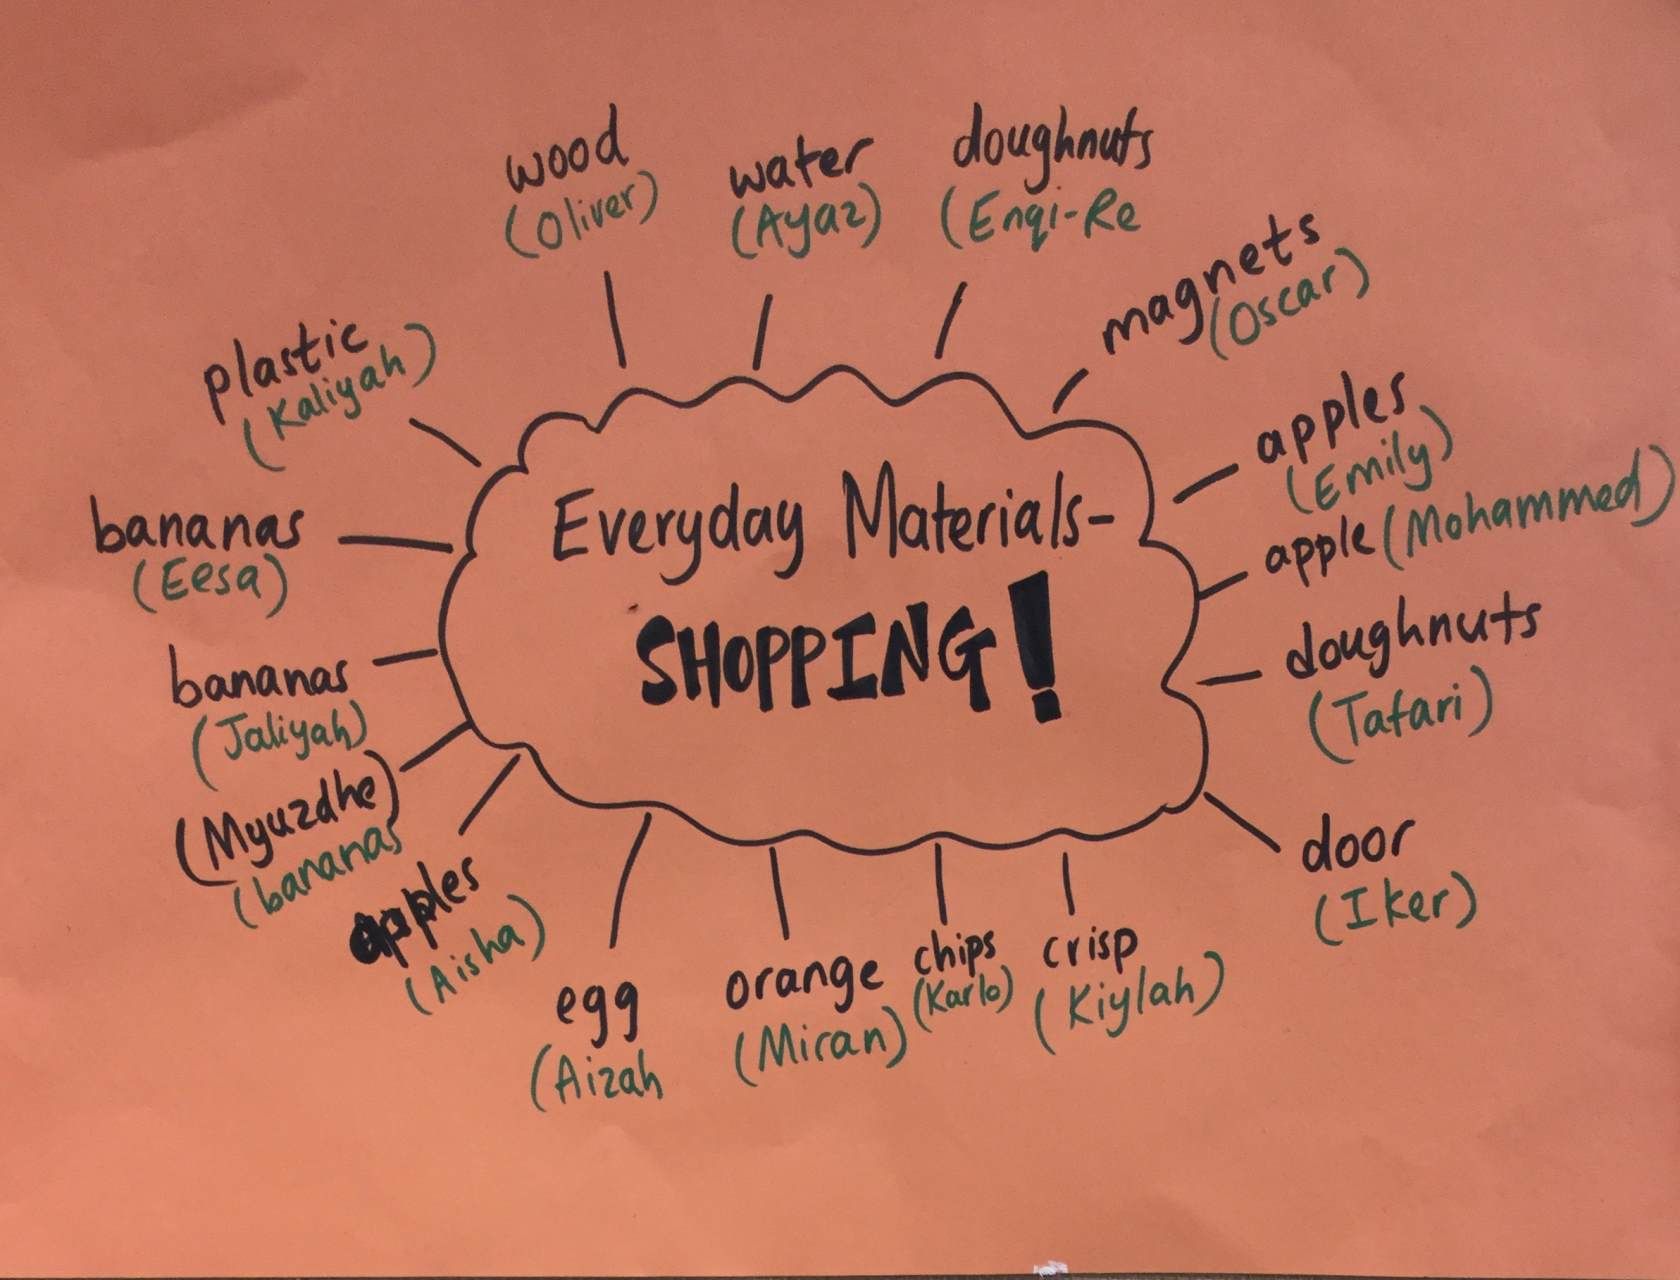 Everyday Materials-
SHOPPING!
wood
(Oliver)
water
(Ayaz)
doughnuts
(Enqi-Re
magnets
(Oscar)
apples
(Emily)
apple (Mohammed)
doughnuts
(Tafari)
door
(Iker)
crisp
(Kiylah)
chips
(Karlo)
orange
(Miran)
egg
(Aizah
apples
(Aisha)
(Myuzdhe)
(bananas
bananas
(Jaliyah)
bananas
(Eesa)
plastic
(Kaliyah)